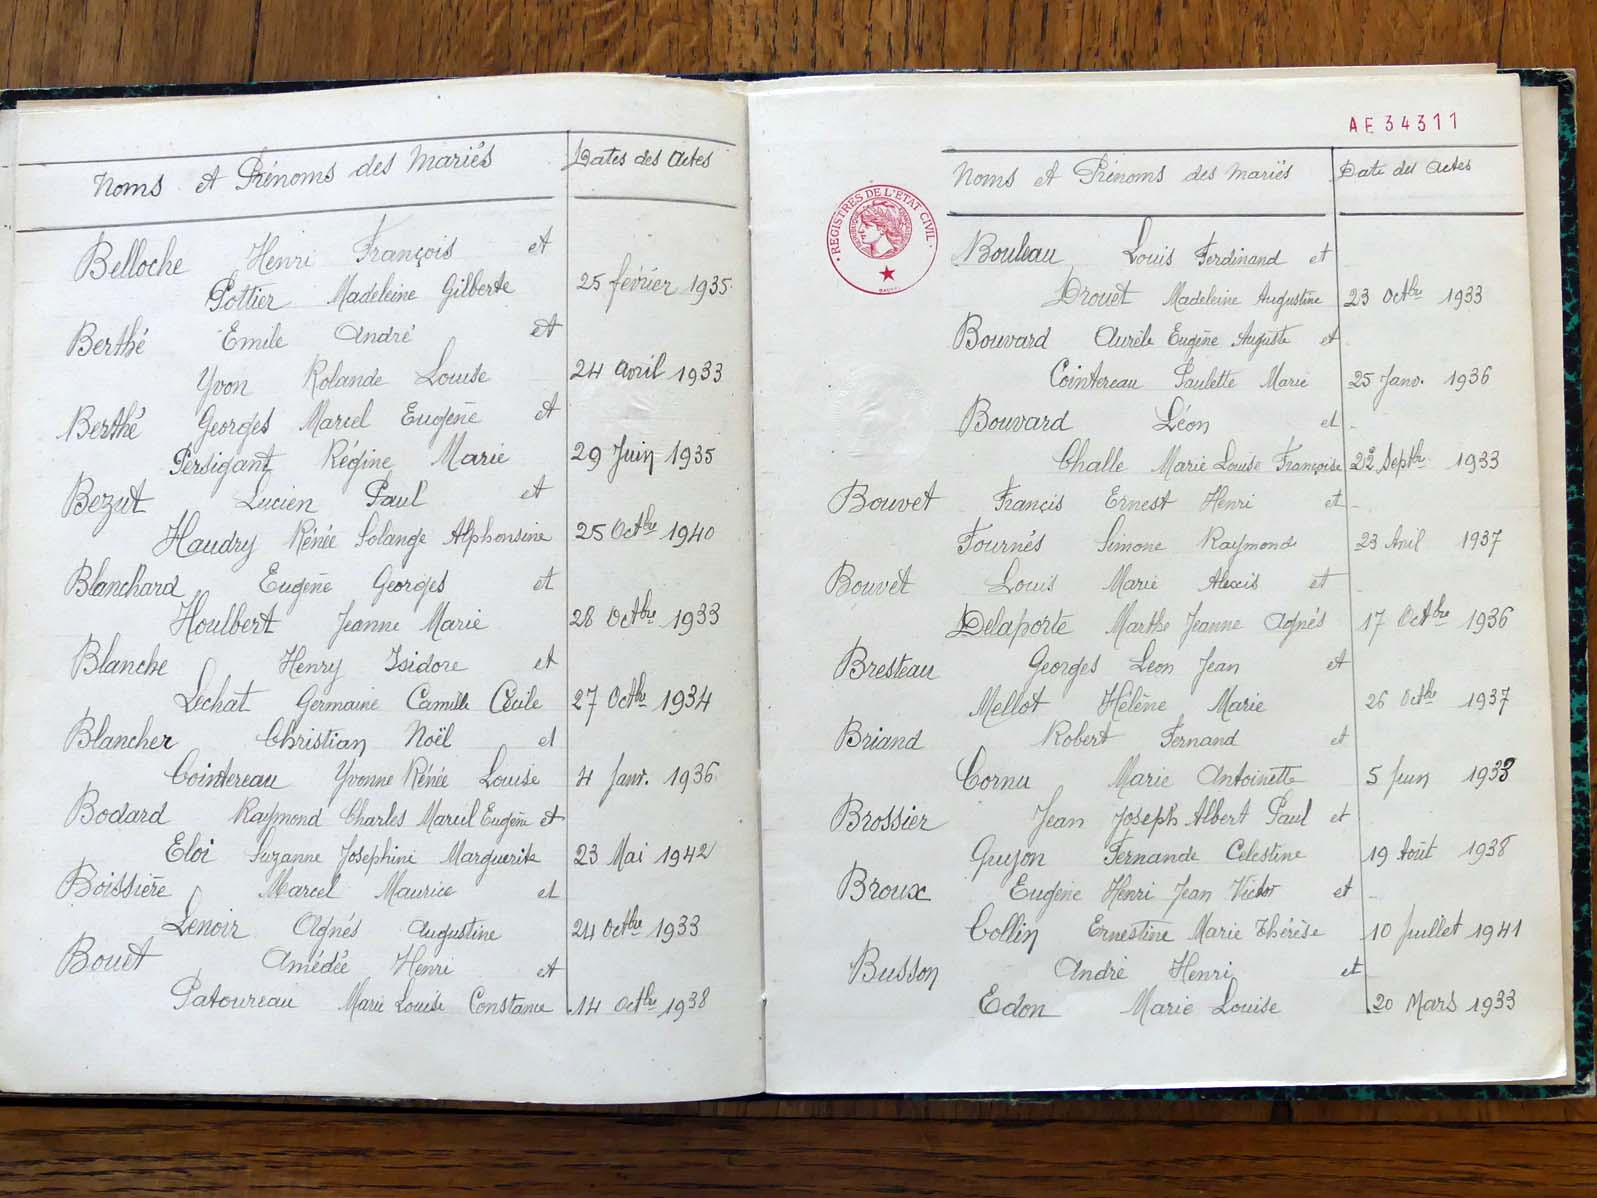 Noms et Prénoms des Mariés
Dates des Actes
Belloche Henri François et
Pottier Madeleine Gilberte 25 février 1935
Berthé Emile André et
Yvon Rolande Louise 24 avril 1933
Berthé Georges Marcel Eugène et
Persigant Régine Marie 29 Juin 1935
Bezut Lucien Paul et
Haudry Rénée Solange Alphonsine 25 Octbre 1940
Blanchard Eugène Georges et
Houlbert Jeanne Marie 28 Octbre 1933
Blanche Henry Isidore et
Lechat Germaine Camille Cécile 27 Octbre 1934
Blancher Christian Noël et
Cointereau Yvonne Rénée Louise 4 Janv. 1936
Bodard Raymond Charles Marcel Eugène et
Eloi Suzanne Josephine Marguerite 23 Mai 1942
Boissière Marcel Maurice et
Lenoir Agnés Augustine 24 Octbre 1933
Bouet Amédée Henri et
Patoureau Marie Louise Constance 14 Octbre 1938
AE 34311
Noms et Prénoms des Mariés
Date des Actes
REGISTRES DE L'ETAT CIVIL
Bouleau Louis Ferdinand et
Drouet Madeleine Augustine 23 Octbre 1933
Bouvard Aurèle Eugène Auguste et
Cointereau Paulette Marie 25 Janv. 1936
Bouvard Léon et
Challe Marie Louise Françoise 22 Septbre 1933
Bouvet Francis Ernest Henri et
Fournés Simone Raymonde 23 Avril 1937
Bouvet Louis Marie Alexis et
Delaporte Marthe Jeanne Agnés 17 Octbre 1936
Bresteau Georges Leon Jean et
Mellot Hélène Marie 26 Octbre 1937
Briand Robert Fernand et
Cornu Marie Antoinette 5 Juin
Brossier Jean Joseph Albert Paul et
Guyon Fernande Celestine 19 Août 1938
Broux Eugène Henri Jean Victor et
Collin Ernestine Marie Thérèse 10 Juillet 1941
Busson André Henri et
Edon Marie Louise 20 Mars 1933